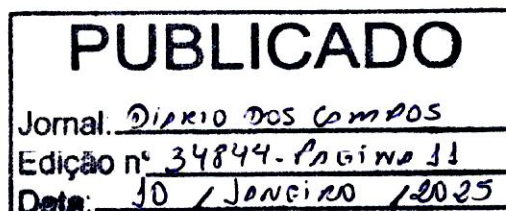 PUBLICADO
Jornal. DIARIO DOS CAMPOS
Edição nº 34844 - PAGINA 11
Data: 10 / JANEIRO / 2025